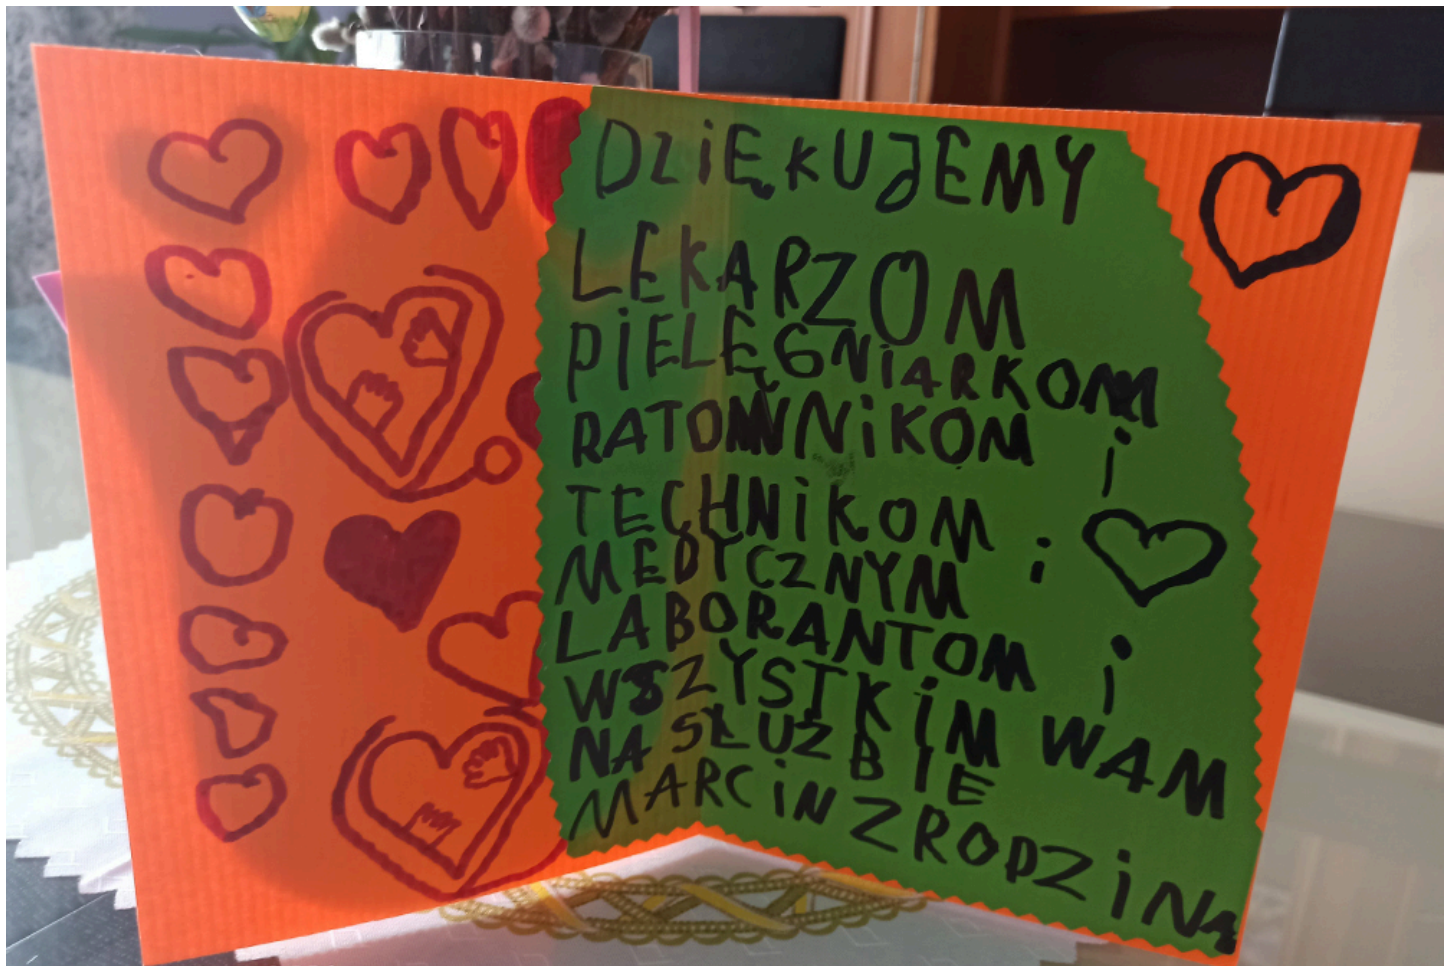 DZiĘKUJEMY
LEKARZOM
PiELĘGNiARKOM
RATOWNiKOM i
TECHNiKOM i
MEDYCZNYM
LABORANTOM i
WSZYSTKiM WAM
NA SŁUŻBIE
MARCiN Z RODZiNą